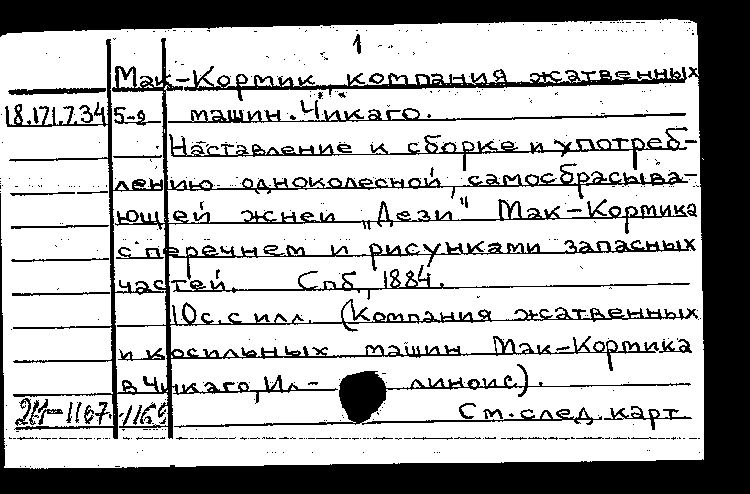 1
Мак-Кормик, компания жатвенных
18.171.7.34 5-е машин. Чикаго.
Наставление к сборке и употреб-
лению одноколесной, самосбрасыва-
ющей жнеи „Дези" Мак-Кормика
с перечнем и рисунками запасных
частей. Спб., 1884.
10с. с илл. (Компания жатвенных
и косильных машин Мак-Кормика
в Чикаго, Ил- линоис).
См. след. карт